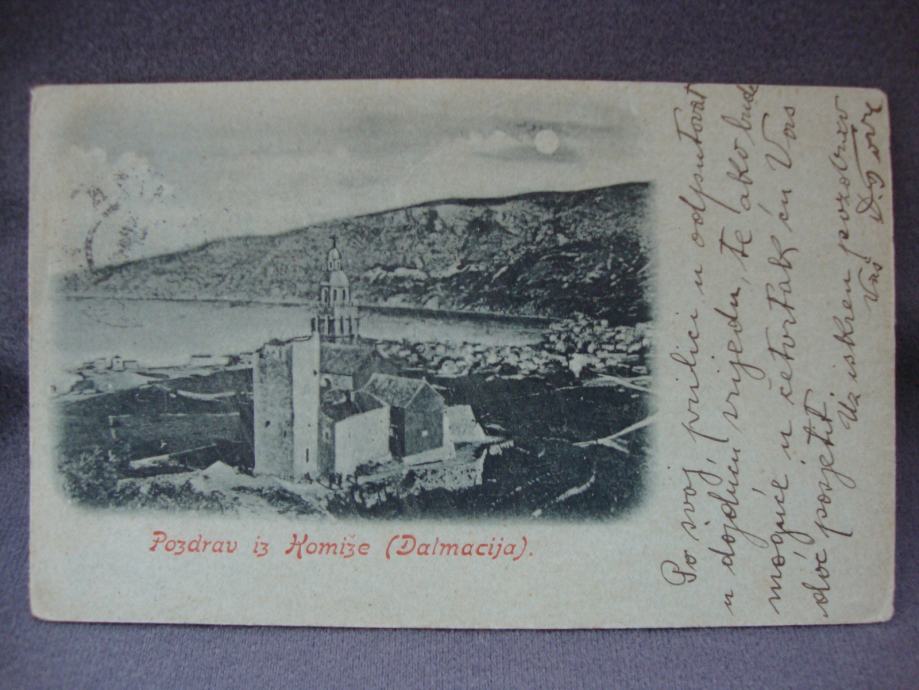 Pozdrav iz Komiže (Dalmacija).
Po svoj prilici u odputovat
u dojdućem vrijedu, te ako bude
moguće u četvrtak ću Vas
doć posjetit.
Uz iskren pozdrav
Vaš